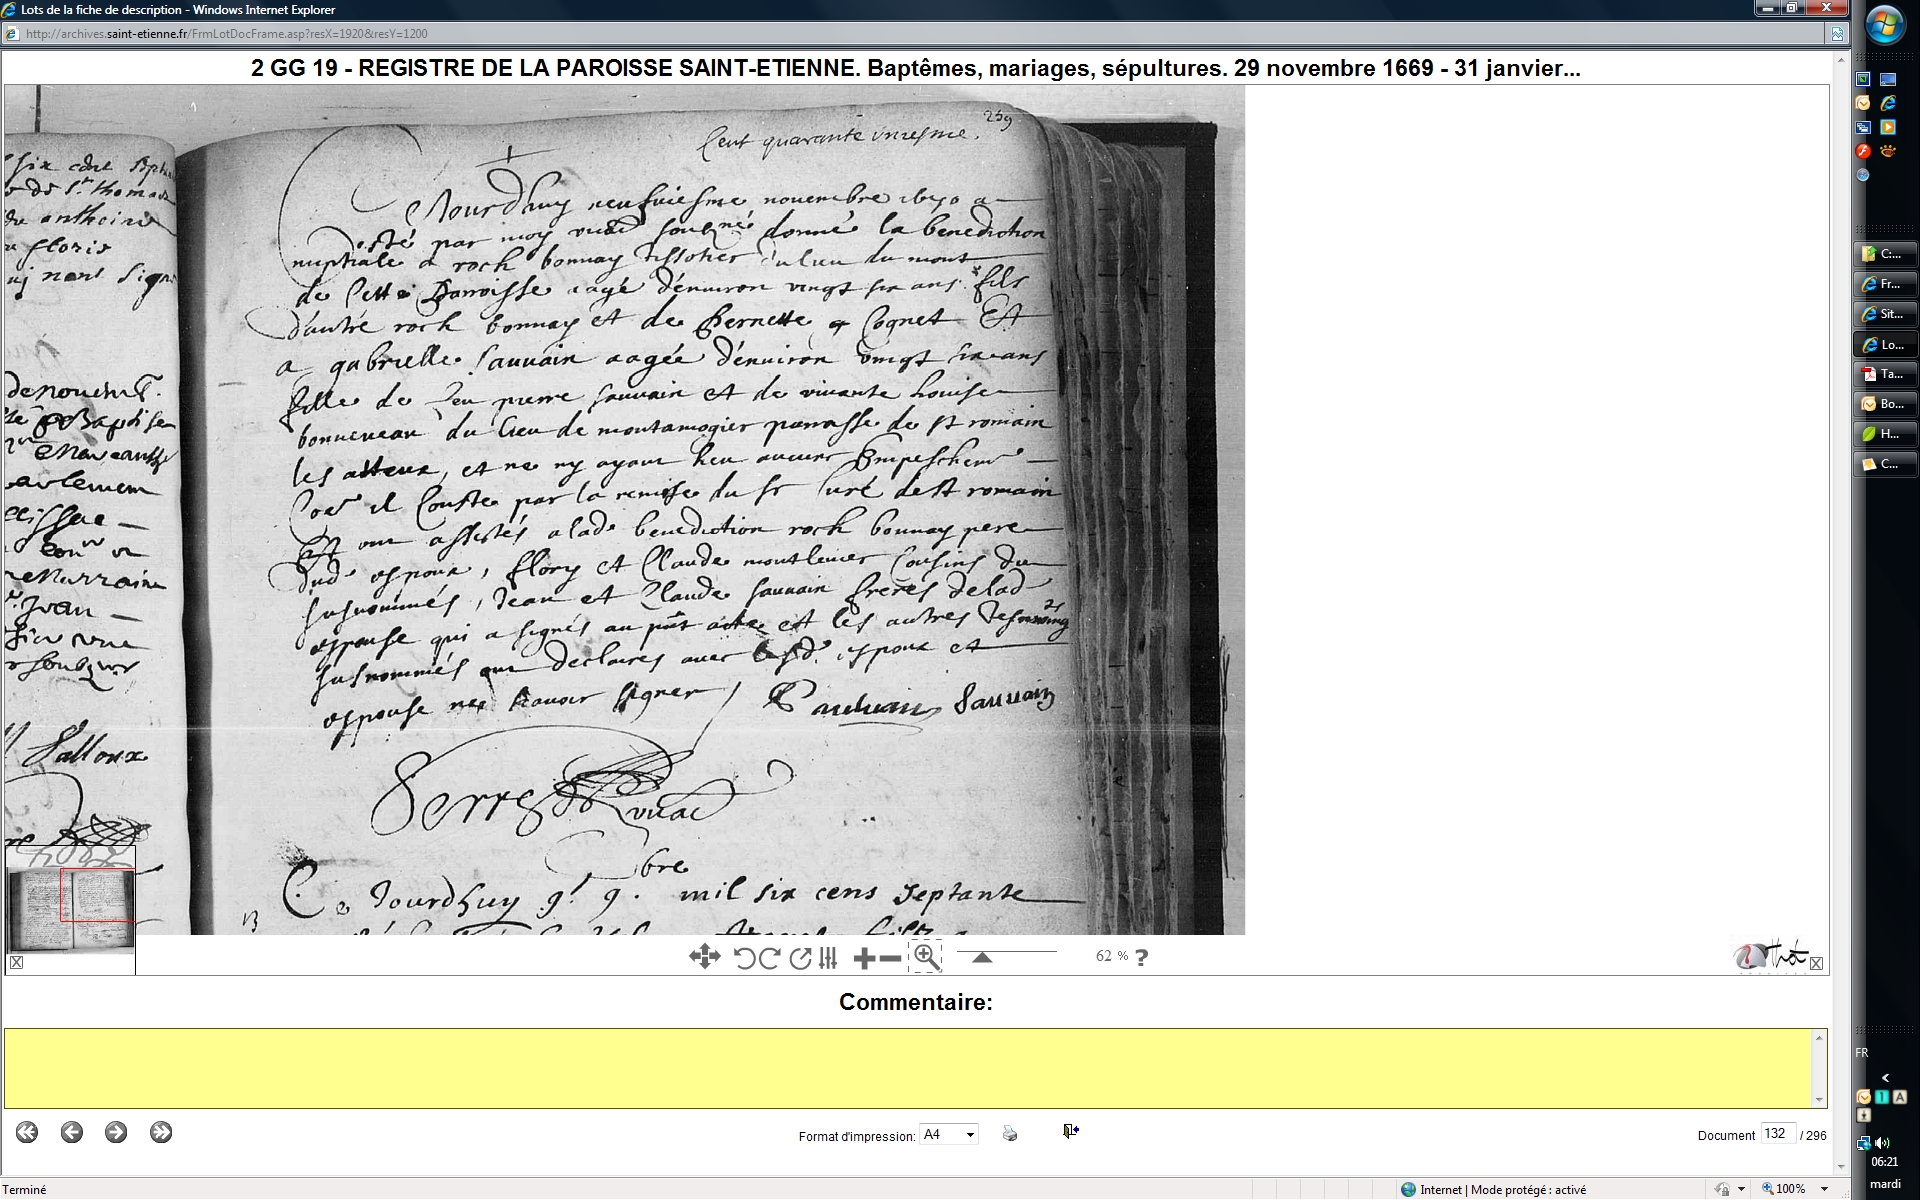 Lots de la fiche de description - Windows Internet Explorer
http://archives.saint-etienne.fr/FrmLotDocFrame.asp?resX=1920&resY=1200
2 GG 19 - REGISTRE DE LA PAROISSE SAINT-ETIENNE. Baptêmes, mariages, sépultures. 29 novembre 1669 - 31 janvier...
239
Cent quarante
Jourdhuy neufviesme novembre 1670 a
esté par moy vicaire soubné donné la benediction
nuptiale a rock bonnay tissotier du lieu du mont
de Cette Parroisse aagé d'environ vingt six ans fils
d'autre rock bonnay et de Pernette Cognet Et
a gabrielle sauvain aagée d'environ vingt six ans
fille de feu pierre sauvain et de vivante louise
du lieu de montamogier parroisse de st romain
les atteux, et ne ny ayant heu aucuns Empeschemt
Coe il Conste par la remise du sr Curé de st romain
Et ont assistés a lad benediction rock bonnay pere
dud espoux, flory et Claude montlevier Cousins du
susnommés, Jean et Claude sauvain freres de lad
espouse qui a signés au pnt acte et les autres tesmoings
susnommés ont declarés avec lesd. espoux et
espouse ne scavoir signer / Sauvain
Serre vicaire
bre
Ce Jourdhuy 9. mil six cens septante
13
six
de St thomas
du antheine
floris
signé
de novembre
Baptisé
Marraine
Jean
Salloux
62 %
?
Thot
Commentaire:
Format d'impression: A4
Document 132 / 296
Terminé
Internet | Mode protégé : activé
100%
C:...
Fr...
Sit...
Lo...
Ta...
Bo...
H...
C...
FR
06:21
mardi